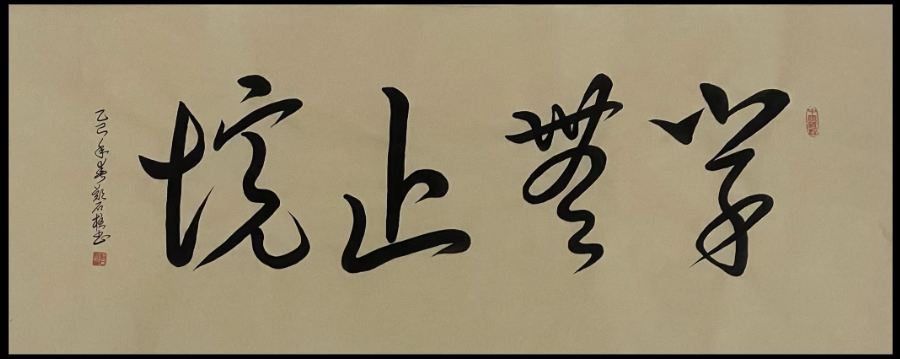 学無止境
乙巳年春 石 书